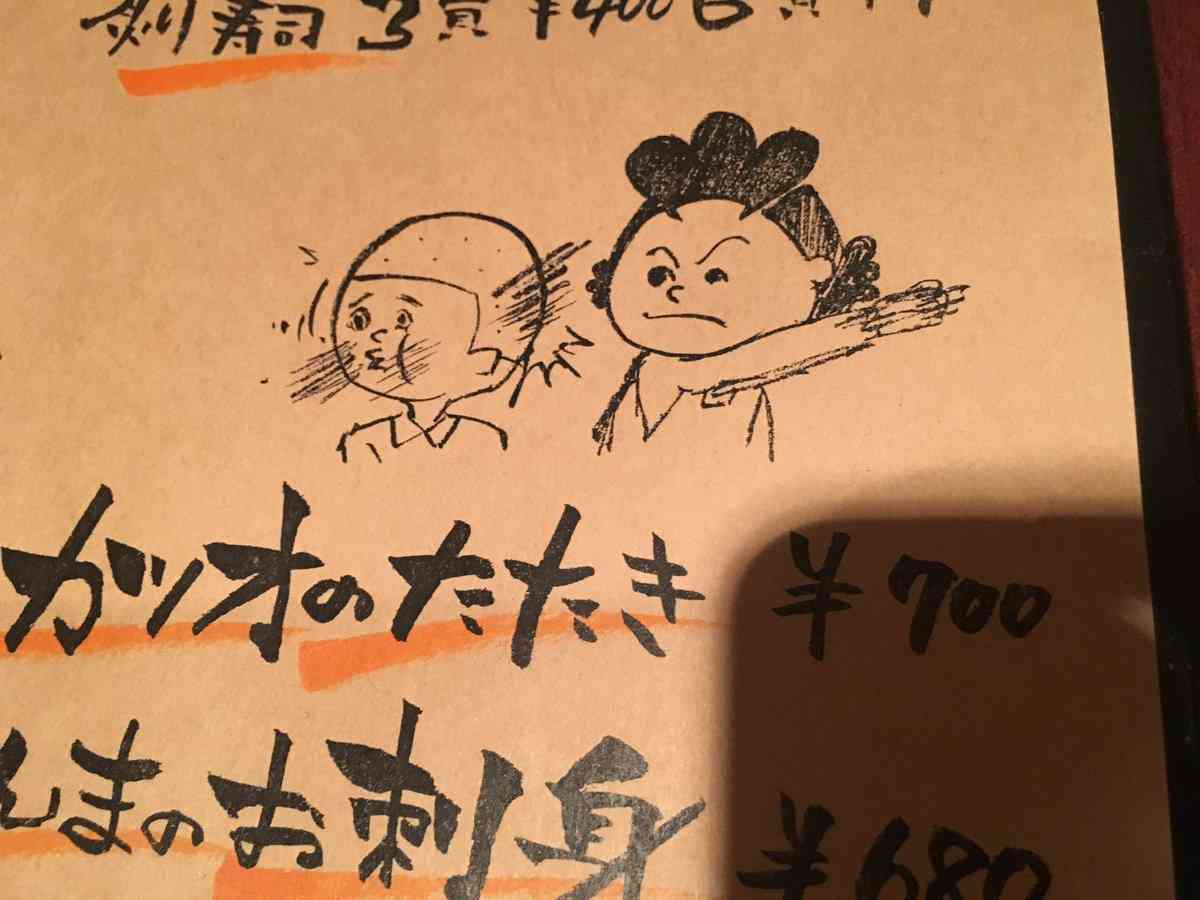 炙り寿司 3貫 ¥400 6貫
カツオのたたき ¥700
んまのお刺身 ¥680